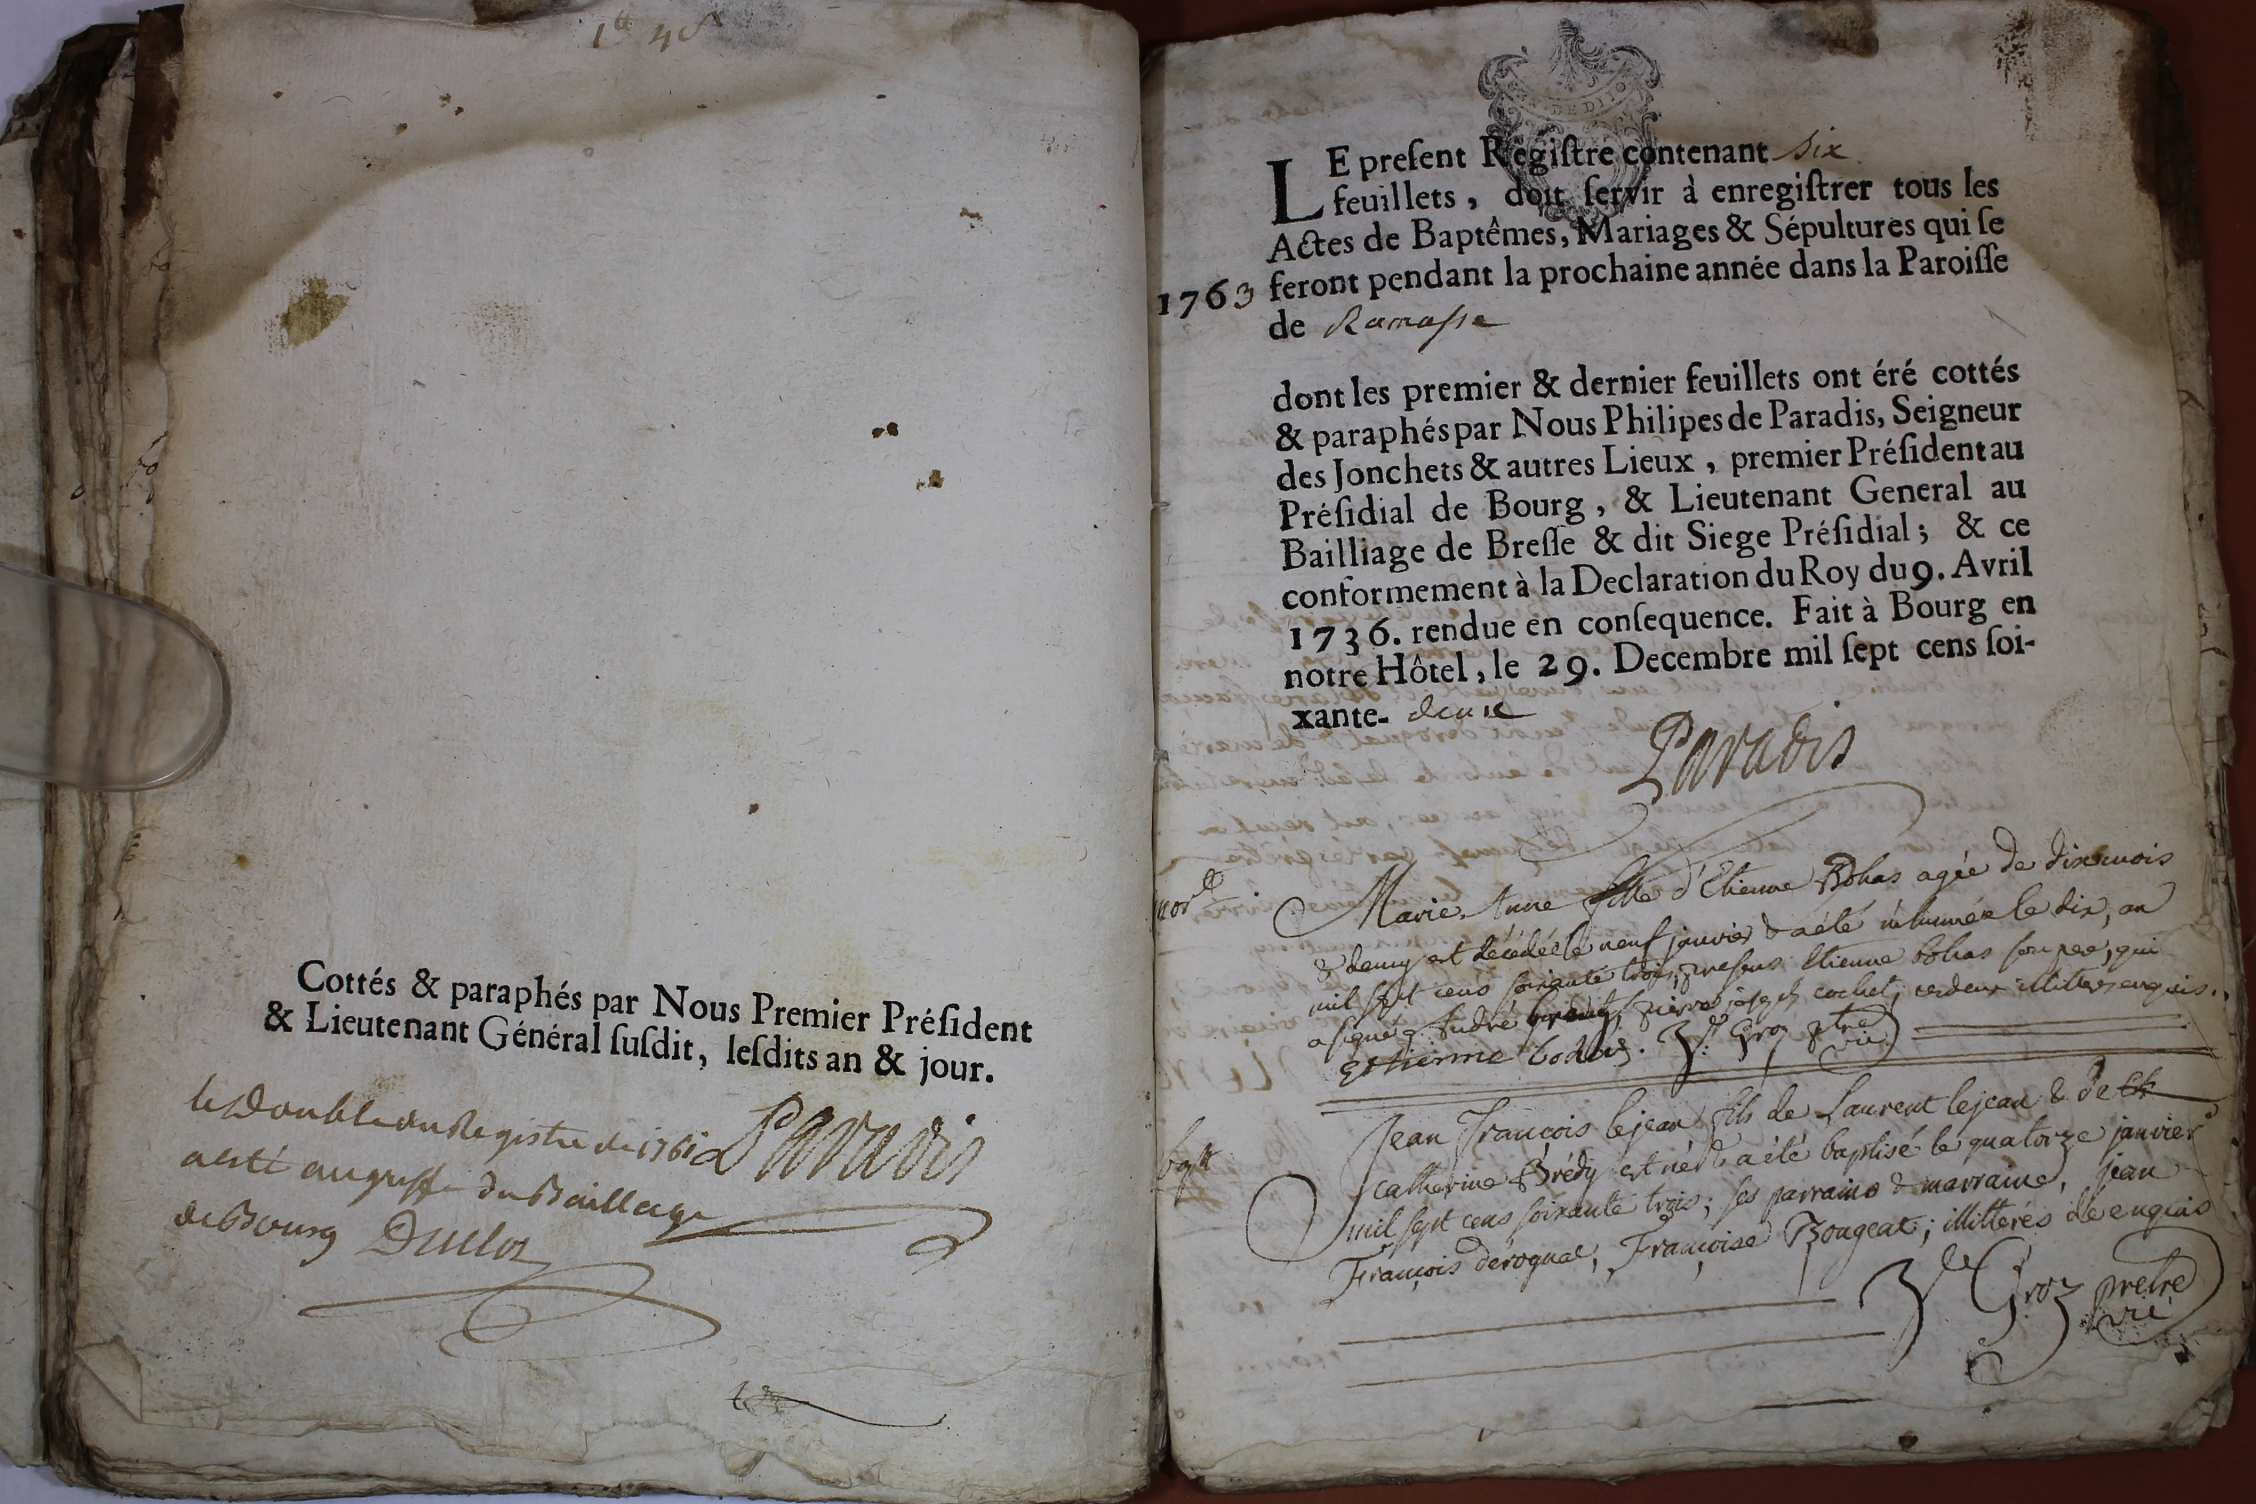 Cottés & paraphés par Nous Premier Préſident
& Lieutenant Général ſuſdit, leſdits an & jour.
le Double du Registre de 1761
Paradis
a esté au greffe du Bailliage
de Bourg Ducloz
LE preſent Regiſtre contenant six
feuillets, doit ſervir à enregiſtrer tous les
Actes de Baptêmes, Mariages & Sépultures qui ſe
1763 feront pendant la prochaine année dans la Paroiſſe
de Ramasse
dont les premier & dernier feuillets ont éré cottés
& paraphés par Nous Philipes de Paradis, Seigneur
des Jonchets & autres Lieux, premier Préſident au
Préſidial de Bourg, & Lieutenant General au
Bailliage de Breſſe & dit Siege Préſidial; & ce
conformement à la Declaration du Roy du 9. Avril
1736. rendue en conſequence. Fait à Bourg en
notre Hôtel, le 29. Decembre mil ſept cens ſoi-
xante- deux
Paradis
mort
Marie Anne fille d'Etienne Bohas agée de dix mois
& demy est décédée le neuf janvier & a été inhumée le dix, an
mil sept cens soixante trois, presens Etienne bohas son pere, qui
a signé, André pierre joseph cochet, ces deux illitteres enquis.
Estienne bohas. Groz ptre vic
bapt
Jean François lejean fils de Laurent lejean & de
catherine Brédy est né & a été baptisé le quatorze janvier
mil sept cens soixante trois; ses parrains & marraine, jean
François derognat, Françoise Bougeat; illitterés de enquis
Groz prêtre
vic